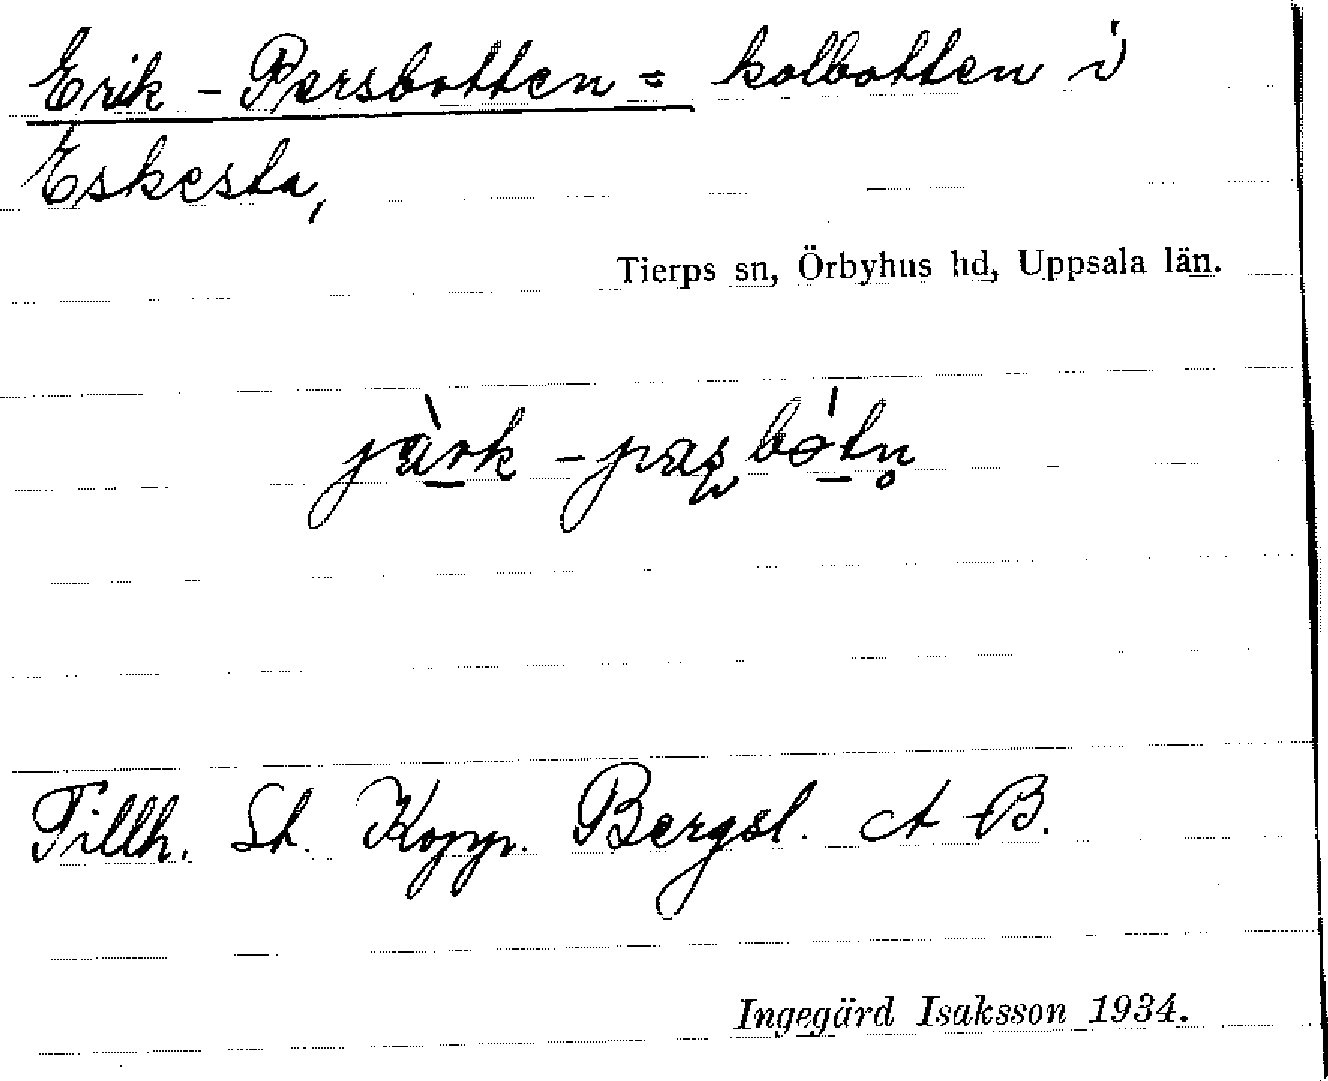 Erik-Persbotten = kolbotten i
Eskesta,
Tierps sn, Örbyhus hd, Uppsala län.
Tillh. St. Kopp. Bergsl. A B.
Ingegärd Isaksson 1934.